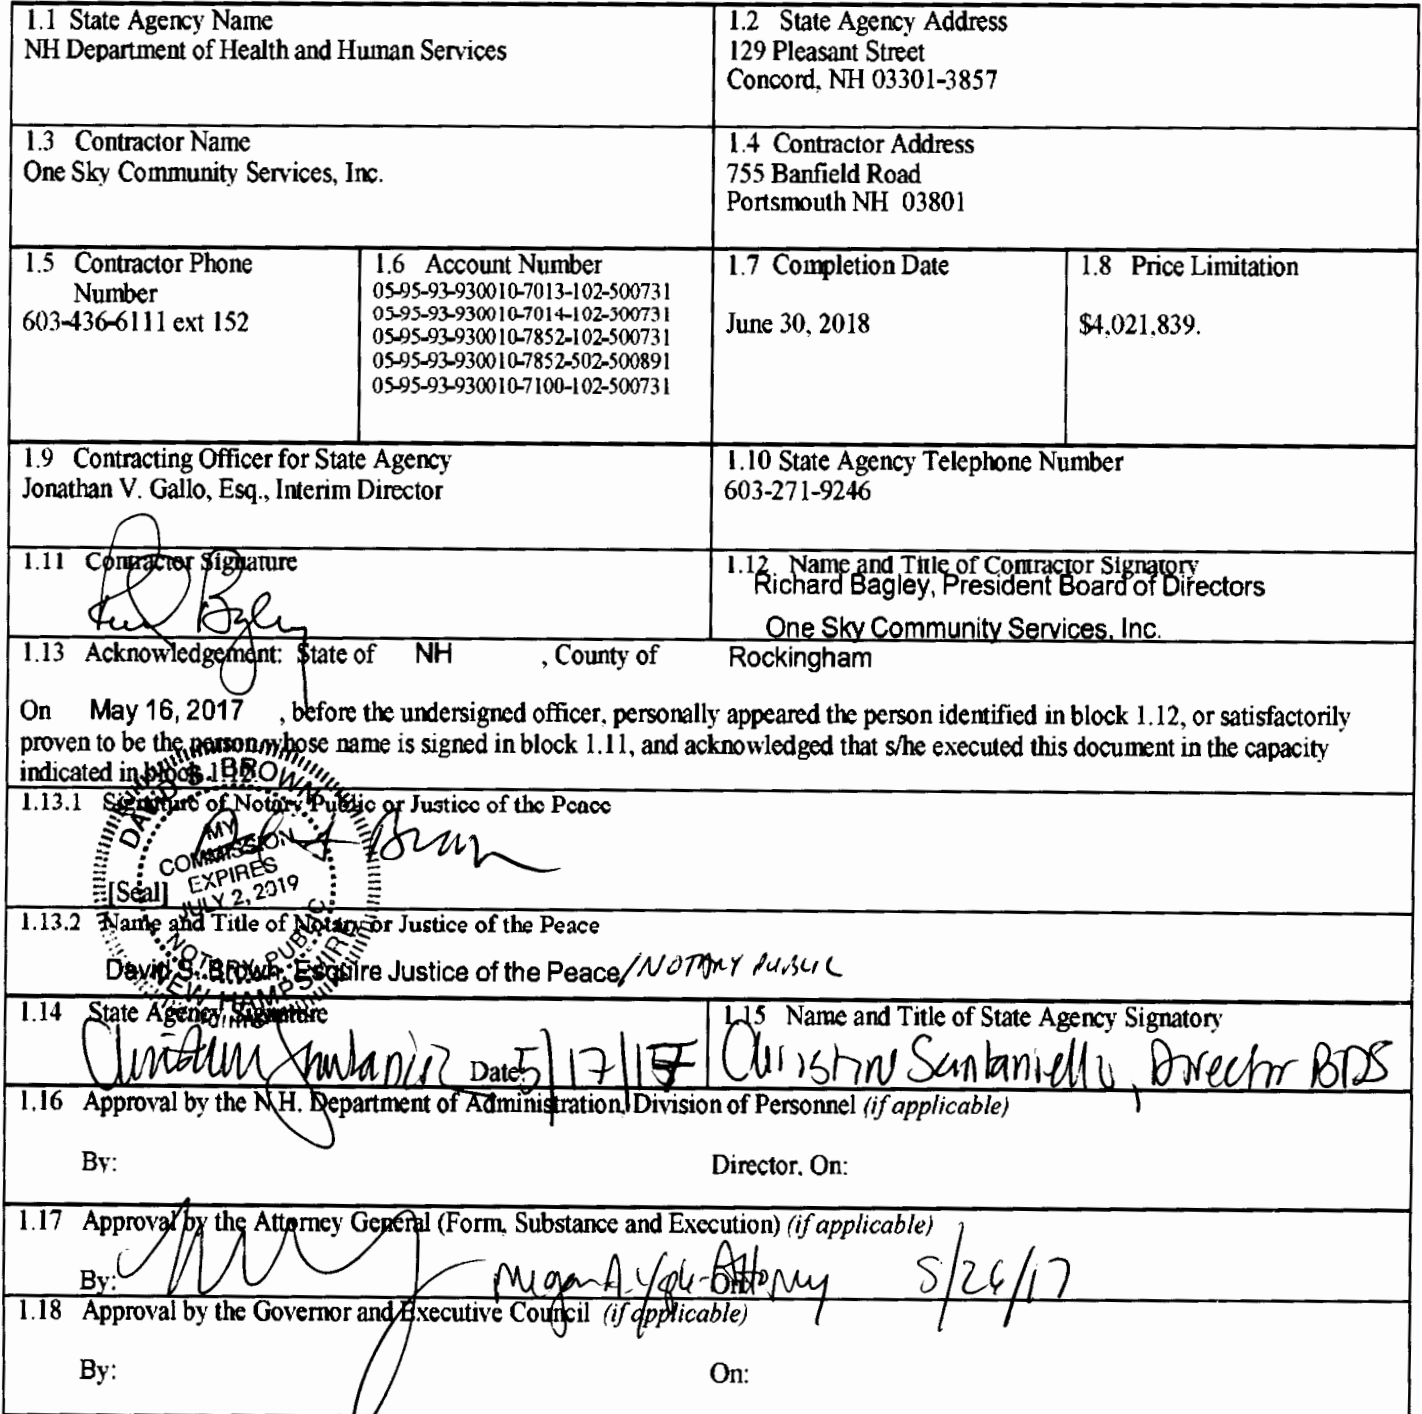 1.1 State Agency Name
NH Department of Health and Human Services
1.2 State Agency Address
129 Pleasant Street
Concord, NH 03301-3857
1.3 Contractor Name
One Sky Community Services, Inc.
1.4 Contractor Address
755 Banfield Road
Portsmouth NH 03801
1.5 Contractor Phone
Number
603-436-6111 ext 152
1.6 Account Number
05-95-93-930010-7013-102-500731
05-95-93-930010-7014-102-500731
05-95-93-930010-7852-102-500731
05-95-93-930010-7852-502-500891
05-95-93-930010-7100-102-500731
1.7 Completion Date
June 30, 2018
1.8 Price Limitation
$4,021,839.
1.9 Contracting Officer for State Agency
Jonathan V. Gallo, Esq., Interim Director
1.10 State Agency Telephone Number
603-271-9246
1.11 Contractor Signature
1.12 Name and Title of Contractor Signatory
Richard Bagley, President Board of Directors
One Sky Community Services, Inc.
1.13 Acknowledgement: State of NH , County of Rockingham
On May 16, 2017 , before the undersigned officer, personally appeared the person identified in block 1.12, or satisfactorily
proven to be the person whose name is signed in block 1.11, and acknowledged that s/he executed this document in the capacity
indicated in block 1.12.
1.13.1 Signature of Notary Public or Justice of the Peace
DAVID S. BROWN
MY
COMMISSION
EXPIRES
JULY 2, 2019
NOTARY PUBLIC
NEW HAMPSHIRE
[Seal]
1.13.2 Name and Title of Notary or Justice of the Peace
David S. Brown, Esquire Justice of the Peace/NOTARY PUBLIC
1.14 State Agency Signature
Date: 5/17/17
1.15 Name and Title of State Agency Signatory
Christine Santaniello, Director BDS
1.16 Approval by the N.H. Department of Administration, Division of Personnel (if applicable)
By: Director, On:
1.17 Approval by the Attorney General (Form, Substance and Execution) (if applicable)
By: Megan A. Attorney 5/26/17
1.18 Approval by the Governor and Executive Council (if applicable)
By: On: